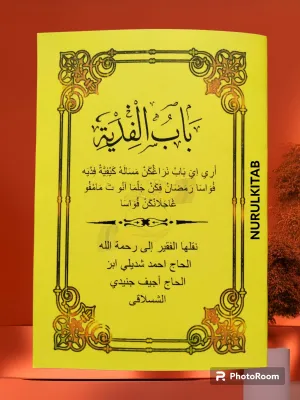 بَابُ الْفِدْيَة
اري اِيَ بَابُ نَرَاڠْكَنْ مَسَالَهْ كَيْفِيَّةُ فِدْيَه
فُوَاسَا رَمَضَانْ
نقلها الفقير إلى رحمة الله
الحاج احمد شديلي ابن
الحاج أجيف جنيدي
الشسلاقى
NURULKITAB
PhotoRoom